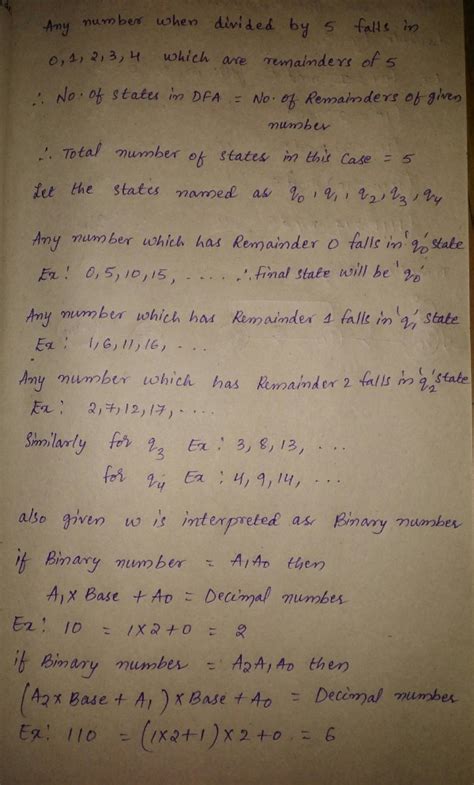 Any number when divided by 5 falls in
0,1,2,3,4 which are remainders of 5
∴ No. of states in DFA = No. of Remainders of given
number
∴ Total number of states in this case = 5
Let the states named as q0, q1, q2, q3, q4
Any number which has Remainder 0 falls in 'q0' state
Ex: 0,5,10,15, ..... ∴ final state will be 'q0'
Any number which has Remainder 1 falls in 'q1' state
Ex: 1,6,11,16, ...
Any number which has Remainder 2 falls in 'q2' state
Ex: 2,7,12,17, ....
Similarly for q3 Ex: 3,8,13, ...
for q4 Ex: 4,9,14, ...
also given w is interpreted as Binary number
if Binary number = A1A0 then
A1 x Base + A0 = Decimal number
Ex: 10 = 1x2+0 = 2
if Binary number = A2A1A0 then
(A2 x Base + A1) x Base + A0 = Decimal number
Ex: 110 = (1x2+1) x 2 + 0 = 6